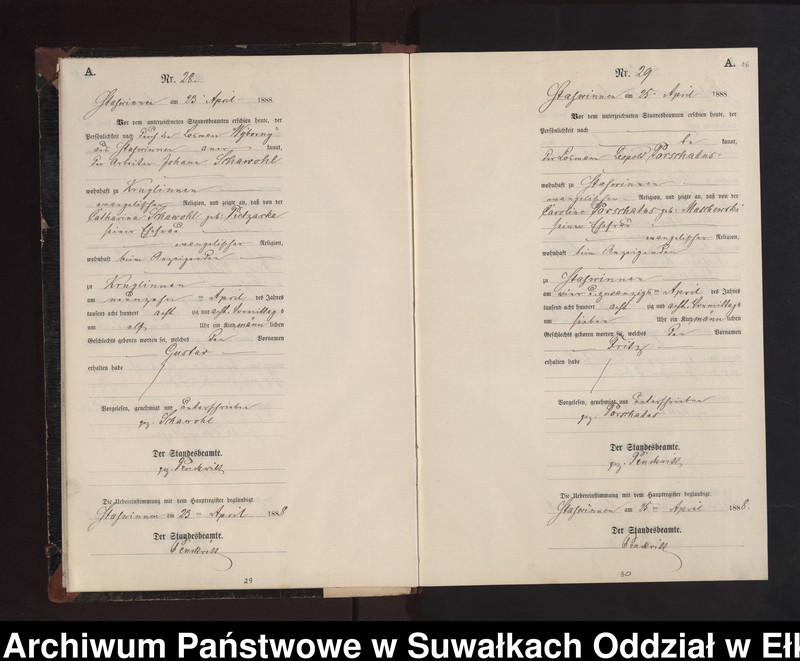 A.
Nr. 28.
Stahswinnen am 23. April 1888.
Vor dem unterzeichneten Standesbeamten erschien heute, der
Persönlichkeit nach durch den Losmann
aus Stahswinnen kannt,
der Arbeiter Johann Skawohl
wohnhaft zu Kruglinnen
evangelischer Religion, und zeigte an, daß von der
Catharina Skawohl geb. Pietzarka
seiner Ehefrau
evangelischer Religion,
wohnhaft beim Anzeigenden
zu Kruglinnen
am neunzehnten April des Jahres
tausend acht hundert acht zig und acht Vormittags
um elf Uhr ein Kind männlichen
Geschlechts geboren worden sei, welches den Vornamen
Gustav
erhalten habe
Vorgelesen, genehmigt und unterschrieben
gez. Skawohl
Der Standesbeamte.
gez.
Die Uebereinstimmung mit dem Hauptregister beglaubigt.
Stahswinnen am 23ten April 1888
Der Standesbeamte.
29
A.
Nr. 29
Stahswinnen am 25. April 1888
Vor dem unterzeichneten Standesbeamten erschien heute, der
Persönlichkeit nach
be kannt,
der Losmann Leopold Porschatus
wohnhaft zu Stahswinnen
evangelischer Religion, und zeigte an, daß von der
Caroline Porschatus geb.
seiner Ehefrau
evangelischer Religion,
wohnhaft beim Anzeigenden
zu Stahswinnen
am vier u. zwanzigsten April des Jahres
tausend acht hundert acht zig und acht Vormittags
um sieben Uhr ein Kind männlichen
Geschlechts geboren worden sei, welches den Vornamen
Fritz
erhalten habe
Vorgelesen, genehmigt und unterschrieben
gez. Porschatus
Der Standesbeamte.
gez.
Die Uebereinstimmung mit dem Hauptregister beglaubigt.
Stahswinnen am 25ten April 1888.
Der Standesbeamte.
30
Archiwum Państwowe w Suwałkach Oddział w Ełk